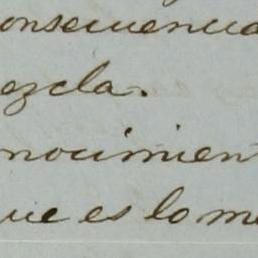 onsecuencia
ezcla.
nocimien
ue es lo me